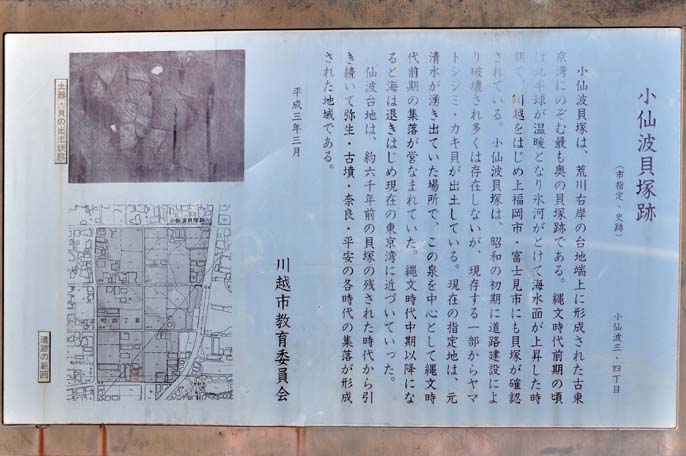 小仙波貝塚跡
(市指定・史跡)
小仙波三・四丁目
小仙波貝塚は、荒川右岸の台地端上に形成された古東
京湾にのぞむ最も奥の貝塚跡である。縄文時代前期の頃
は北半球が温暖となり氷河がとけて海水面が上昇した時
期で、川越をはじめ上福岡市・富士見市にも貝塚が確認
されている。小仙波貝塚は、昭和の初期に道路建設によ
り破壊され多くは存在しないが、現存する一部からヤマ
トシジミ・カキ貝が出土している。現在の指定地は、元
清水が湧き出ていた場所で、この泉を中心として縄文時
代前期の集落が営なまれていた。縄文時代中期以降にな
ると海は退きはじめ現在の東京湾に近づいていった。
仙波台地は、約六千年前の貝塚の残された時代から引
き続いて弥生・古墳・奈良・平安の各時代の集落が形成
された地域である。
平成三年三月
川越市教育委員会
土器・貝の出土状態
小仙波貝塚跡
遺跡の範囲